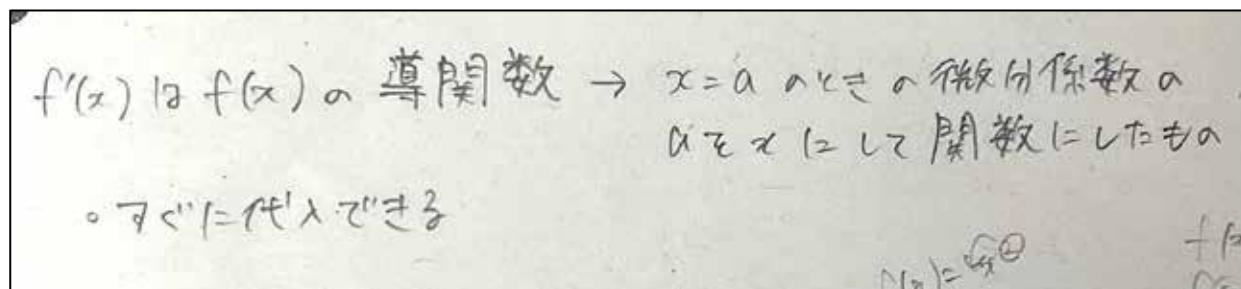 f'(x) は f(x) の 導関数 → x=a のときの微分係数の
aをxにして関数にしたもの
。すぐに代入できる